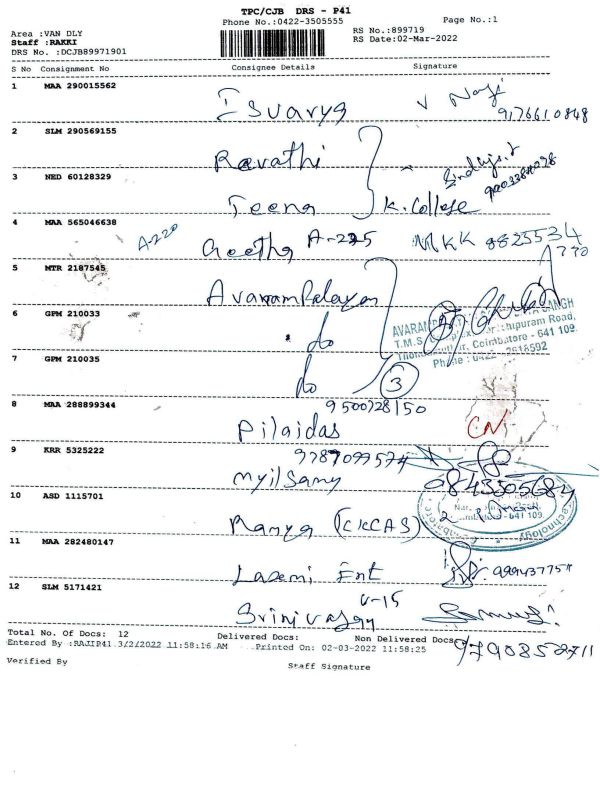 TPC/CJB DRS - P41
Phone No.:0422-3505555
Page No.:1
Area :VAN DLY
Staff :RAKKI
DRS No. :DCJB89971901
RS No.:899719
RS Date:02-Mar-2022
S No Consignment No Consignee Details Signature
1 MAA 290015562 Esvarya
9176610848
2 SLM 290569155 Revathi
3 NED 60128329 Teena K. College
4 MAA 565046638 A-220 Geetha A-225 MKK
5 MTR 2187545 Avarampalayan
6 GPM 210033 do
7 GPM 210035 do 3
T.M.S. Road,
Coimbatore - 641 109.
8 MAA 288899344 9500728150
Pilaidas CN
9 KRR 5325222
Myilsamy
10 ASD 1115701 Ramya (CKCAS)
641 109.
11 MAA 282480147 Laxmi Ent
12 SLM 5171421 Srinivasan
Total No. Of Docs: 12 Delivered Docs: Non Delivered Docs:
Entered By :RAJIP41 3/2/2022 11:58:16 AM Printed On: 02-03-2022 11:58:25
Verified By Staff Signature